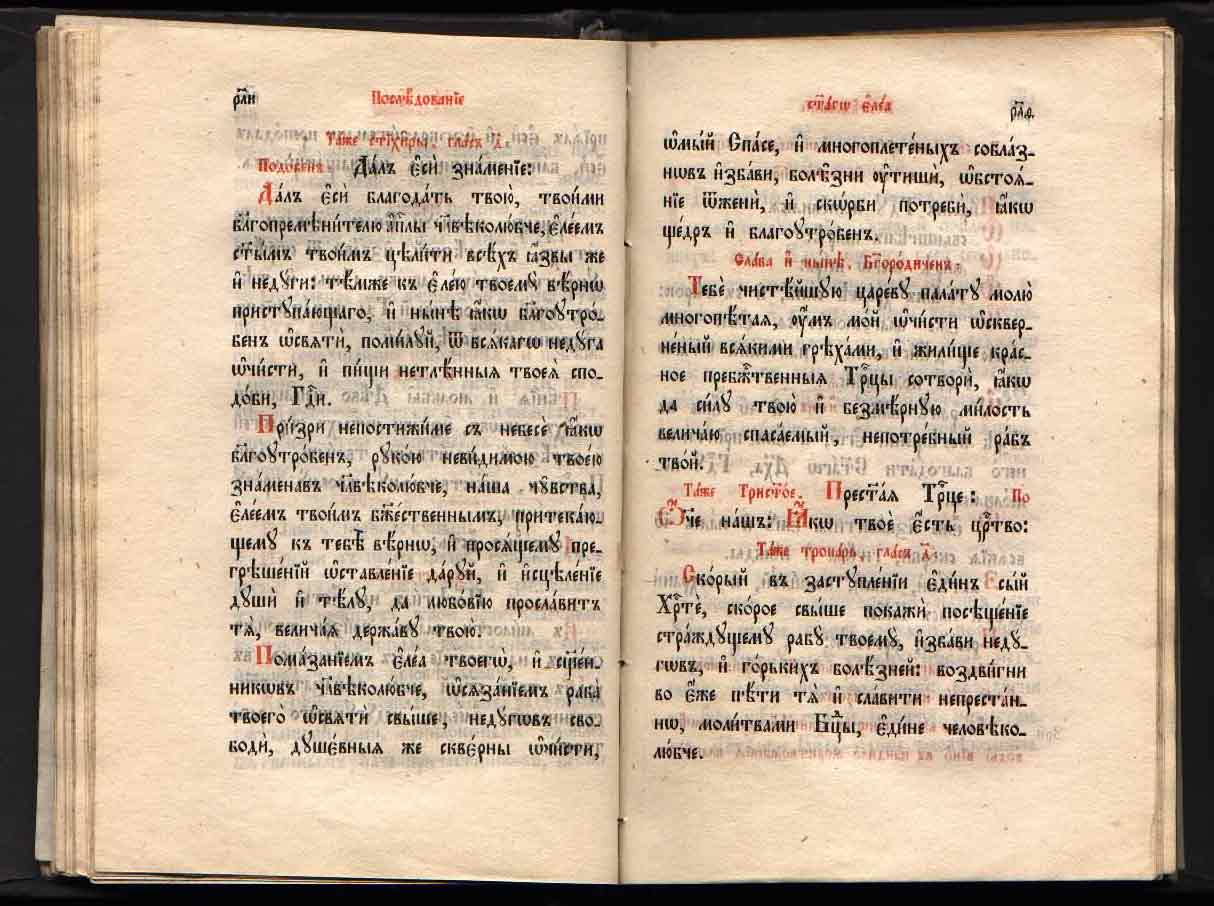 рл҃и Послѣ́дованїе
Та́же стїхи̑ры, гла́съ д҃.
Подо́бенъ. Да́лъ є҆сѝ зна́менїе:
Да́лъ є҆сѝ благода́ть твою̀, твои́ми
бл҃гопремѣни́телю а҆пⷭ҇лы чл҃вѣколю́бче, є҆ле́емъ
ст҃ы́мъ твои́мъ цѣли́ти всѣ́хъ ꙗ҆́звы же
и҆ неду́ги: тѣ́мже къ є҆ле́ю твоемꙋ̀ вѣ́рнѡ
пристꙋпа́ющаго, и҆ ны́нѣ ꙗ҆́кѡ бл҃гоꙋтро́-
бенъ ѡ҆свѧтѝ, поми́лꙋй, ѿ всѧ́кагѡ недꙋ́га
ѡ҆чи́сти, и҆ пи́щи нетлѣ́нныѧ твоеѧ̀ спо-
до́би, Гдⷭ҇и.
При́зри непостижи́ме съ небесѐ ꙗ҆́кѡ
бл҃гоꙋтро́бенъ, рꙋко́ю неви́димою твое́ю
зна́менавъ чл҃вѣколю́бче, на́ша чꙋ̑вства,
є҆ле́емъ твои́мъ бжⷭ҇е́ственнымъ, притека́ю-
щемꙋ къ тебѣ̀ вѣ́рнѡ, и҆ просѧ́щемꙋ пре-
грѣше́нїй ѡ҆ставле́нїе да́рꙋй, и҆ и҆сцѣле́нїе
дꙋшѝ и҆ тѣ́лꙋ, да любо́вїю просла́витъ
тѧ̀, велича́ѧ держа́вꙋ твою̀.
Пома́занїемъ є҆ле́а твоегѡ̀, и҆ сщ҃е́н-
никѡвъ чл҃вѣколю́бче, ѡ҆сѧза́нїемъ раба̀
твоего̀ ѡ҆свѧтѝ свы́ше, недꙋ́гѡвъ сво-
бодѝ, дꙋше́вныѧ же сквє́рны ѡ҆чи́сти,
ст҃а́гѡ є҆ле́а рл҃ѳ.
ѡ҆мы́й Спа́се, и҆ многоплете́ныхъ собла́з-
нѡвъ и҆зба́ви, болѣ̑зни ᲂу҆тишѝ, ѡ҆бстоѧ́-
нїе ѿженѝ, и҆ скѡ́рби потребѝ, ꙗ҆́кѡ
ще́дръ и҆ благоꙋтро́бенъ.
Сла́ва и҆ ны́нѣ. Бг҃оро́диченъ:
Тебѐ чистѣ́йшꙋю царе́вꙋ пала́тꙋ молю̀
многопѣ́таѧ, ᲂу҆́мъ мо́й ѡ҆чи́сти ѡ҆скверне-
не́ный всѧ́кими грѣха́ми, и҆ жили́ще кра́с-
ное пребжⷭ҇твенныѧ Трⷪ҇цы сотворѝ, ꙗ҆́кѡ
да си́лꙋ твою̀ и҆ безмѣ́рнꙋю ми́лость
велича́ю спаса́емый, непотре́бный ра́бъ
тво́й.
Та́же Трист҃о́е. Прест҃а́ѧ Трⷪ҇це: По
Ѻ҆́ч҃е на́шъ: Ꙗ҆́кѡ твоѐ є҆́сть црⷭ҇тво:
Та́же тропа́рь, гла́съ д҃.
Ско́рый въ застꙋпле́нїи є҆ди́нъ сы́й
Хрⷭ҇тѐ, ско́рое свы́ше покажѝ посѣще́нїе
стра́ждꙋщемꙋ рабꙋ̀ твоемꙋ̀, и҆зба́ви недꙋ̑-
гѡвъ, и҆ го́рькихъ болѣ́зней: воздви́гни
во є҆́же пѣ́ти тѧ̀ и҆ сла́вити непреста́н-
нѡ, моли́твами Бцⷣы, є҆ди́не человѣко-
лю́бче.